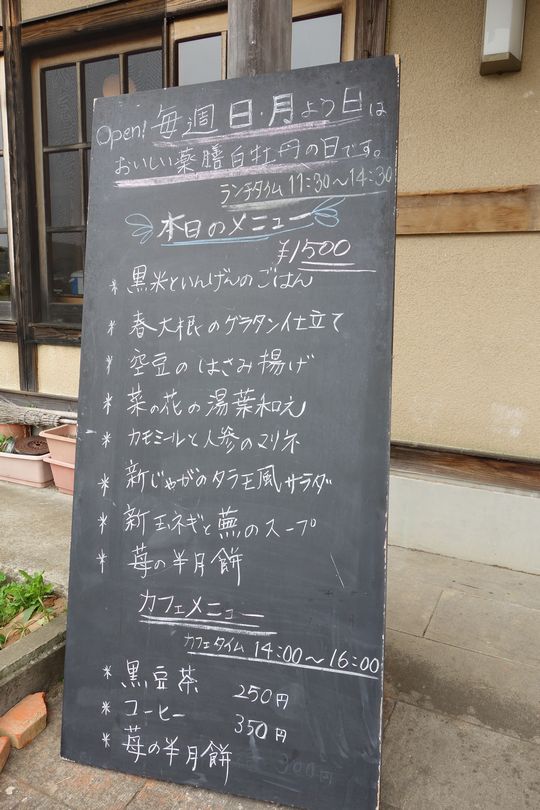 Open! 毎週 日・月よう日は
おいしい薬膳白牡丹の日です。
ランチタイム 11:30〜14:30
本日のメニュー
¥1500
* 黒米といんげんのごはん
* 春大根のグラタン仕立て
* 空豆のはさみ揚げ
* 菜の花の湯葉和え
* カモミールと人参のマリネ
* 新じゃがのタラモ風サラダ
* 新玉ネギと蕪のスープ
* 苺の半月餅
カフェメニュー
カフェタイム 14:00〜16:00
* 黒豆茶 250円
* コーヒー 350円
* 苺の半月餅 300円